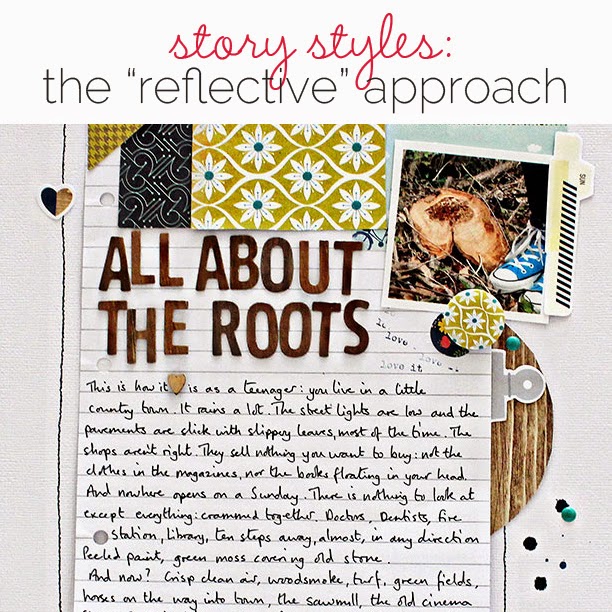 story styles:
the “reflective” approach
SUN
ALL ABOUT
THE ROOTS
love it
love
love it
This is how it is as a teenager: you live in a little
country town. It rains a lot. The street lights are low and the
pavements are slick with slippery leaves, most of the time. The
shops aren't right. They sell nothing you want to buy: not the
clothes in the magazines, nor the books floating in your head.
And nowhere opens on a Sunday. There is nothing to look at
except everything: crammed together. Doctors, Dentists, fire
station, library, ten steps away, almost, in any direction
Peeled paint, green moss covering old stone.
And now? Crisp clean air, woodsmoke, turf, green fields,
horses on the way into town, the sawmill, the old cinema